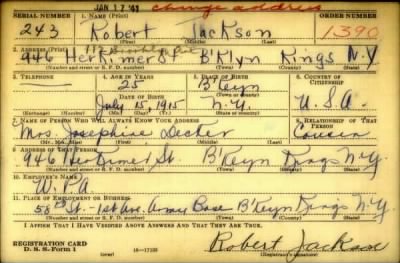 JAN 17 '41 change address
SERIAL NUMBER 1. NAME (Print) ORDER NUMBER
243 Robert Jackson 1390
(First) (Middle) (Last)
2. ADDRESS (Print) 112 Brooklyn Ave
946 Herkimer St B'klyn Kings N.Y
(Number and street or R. F. D. number) (Town) (County) (State)
3. TELEPHONE 4. AGE IN YEARS 5. PLACE OF BIRTH 6. COUNTRY OF CITIZENSHIP
25 B'klyn
DATE OF BIRTH
July 15, 1915 N.Y. U.S.A.
(Exchange) (No.) (Mo.) (Day) (Yr.) (State or country)
7. NAME OF PERSON WHO WILL ALWAYS KNOW YOUR ADDRESS 8. RELATIONSHIP OF THAT PERSON
Mrs. Josephine Decker Cousin
(Mr., Mrs., Miss) (First) (Middle) (Last)
9. ADDRESS OF THAT PERSON
946 Herkimer St. B'klyn Kings N.Y.
(Number and street or R. F. D. number) (Town) (County) (State)
10. EMPLOYER'S NAME
W.P.A
11. PLACE OF EMPLOYMENT OR BUSINESS
58th St - 1st Ave. Army Base B'klyn Kings N.Y
(Number and street or R. F. D. number) (Town) (County) (State)
I AFFIRM THAT I HAVE VERIFIED ABOVE ANSWERS AND THAT THEY ARE TRUE.
REGISTRATION CARD
D. S. S. Form 1 16—17105 Robert Jackson
(Registrant's signature)